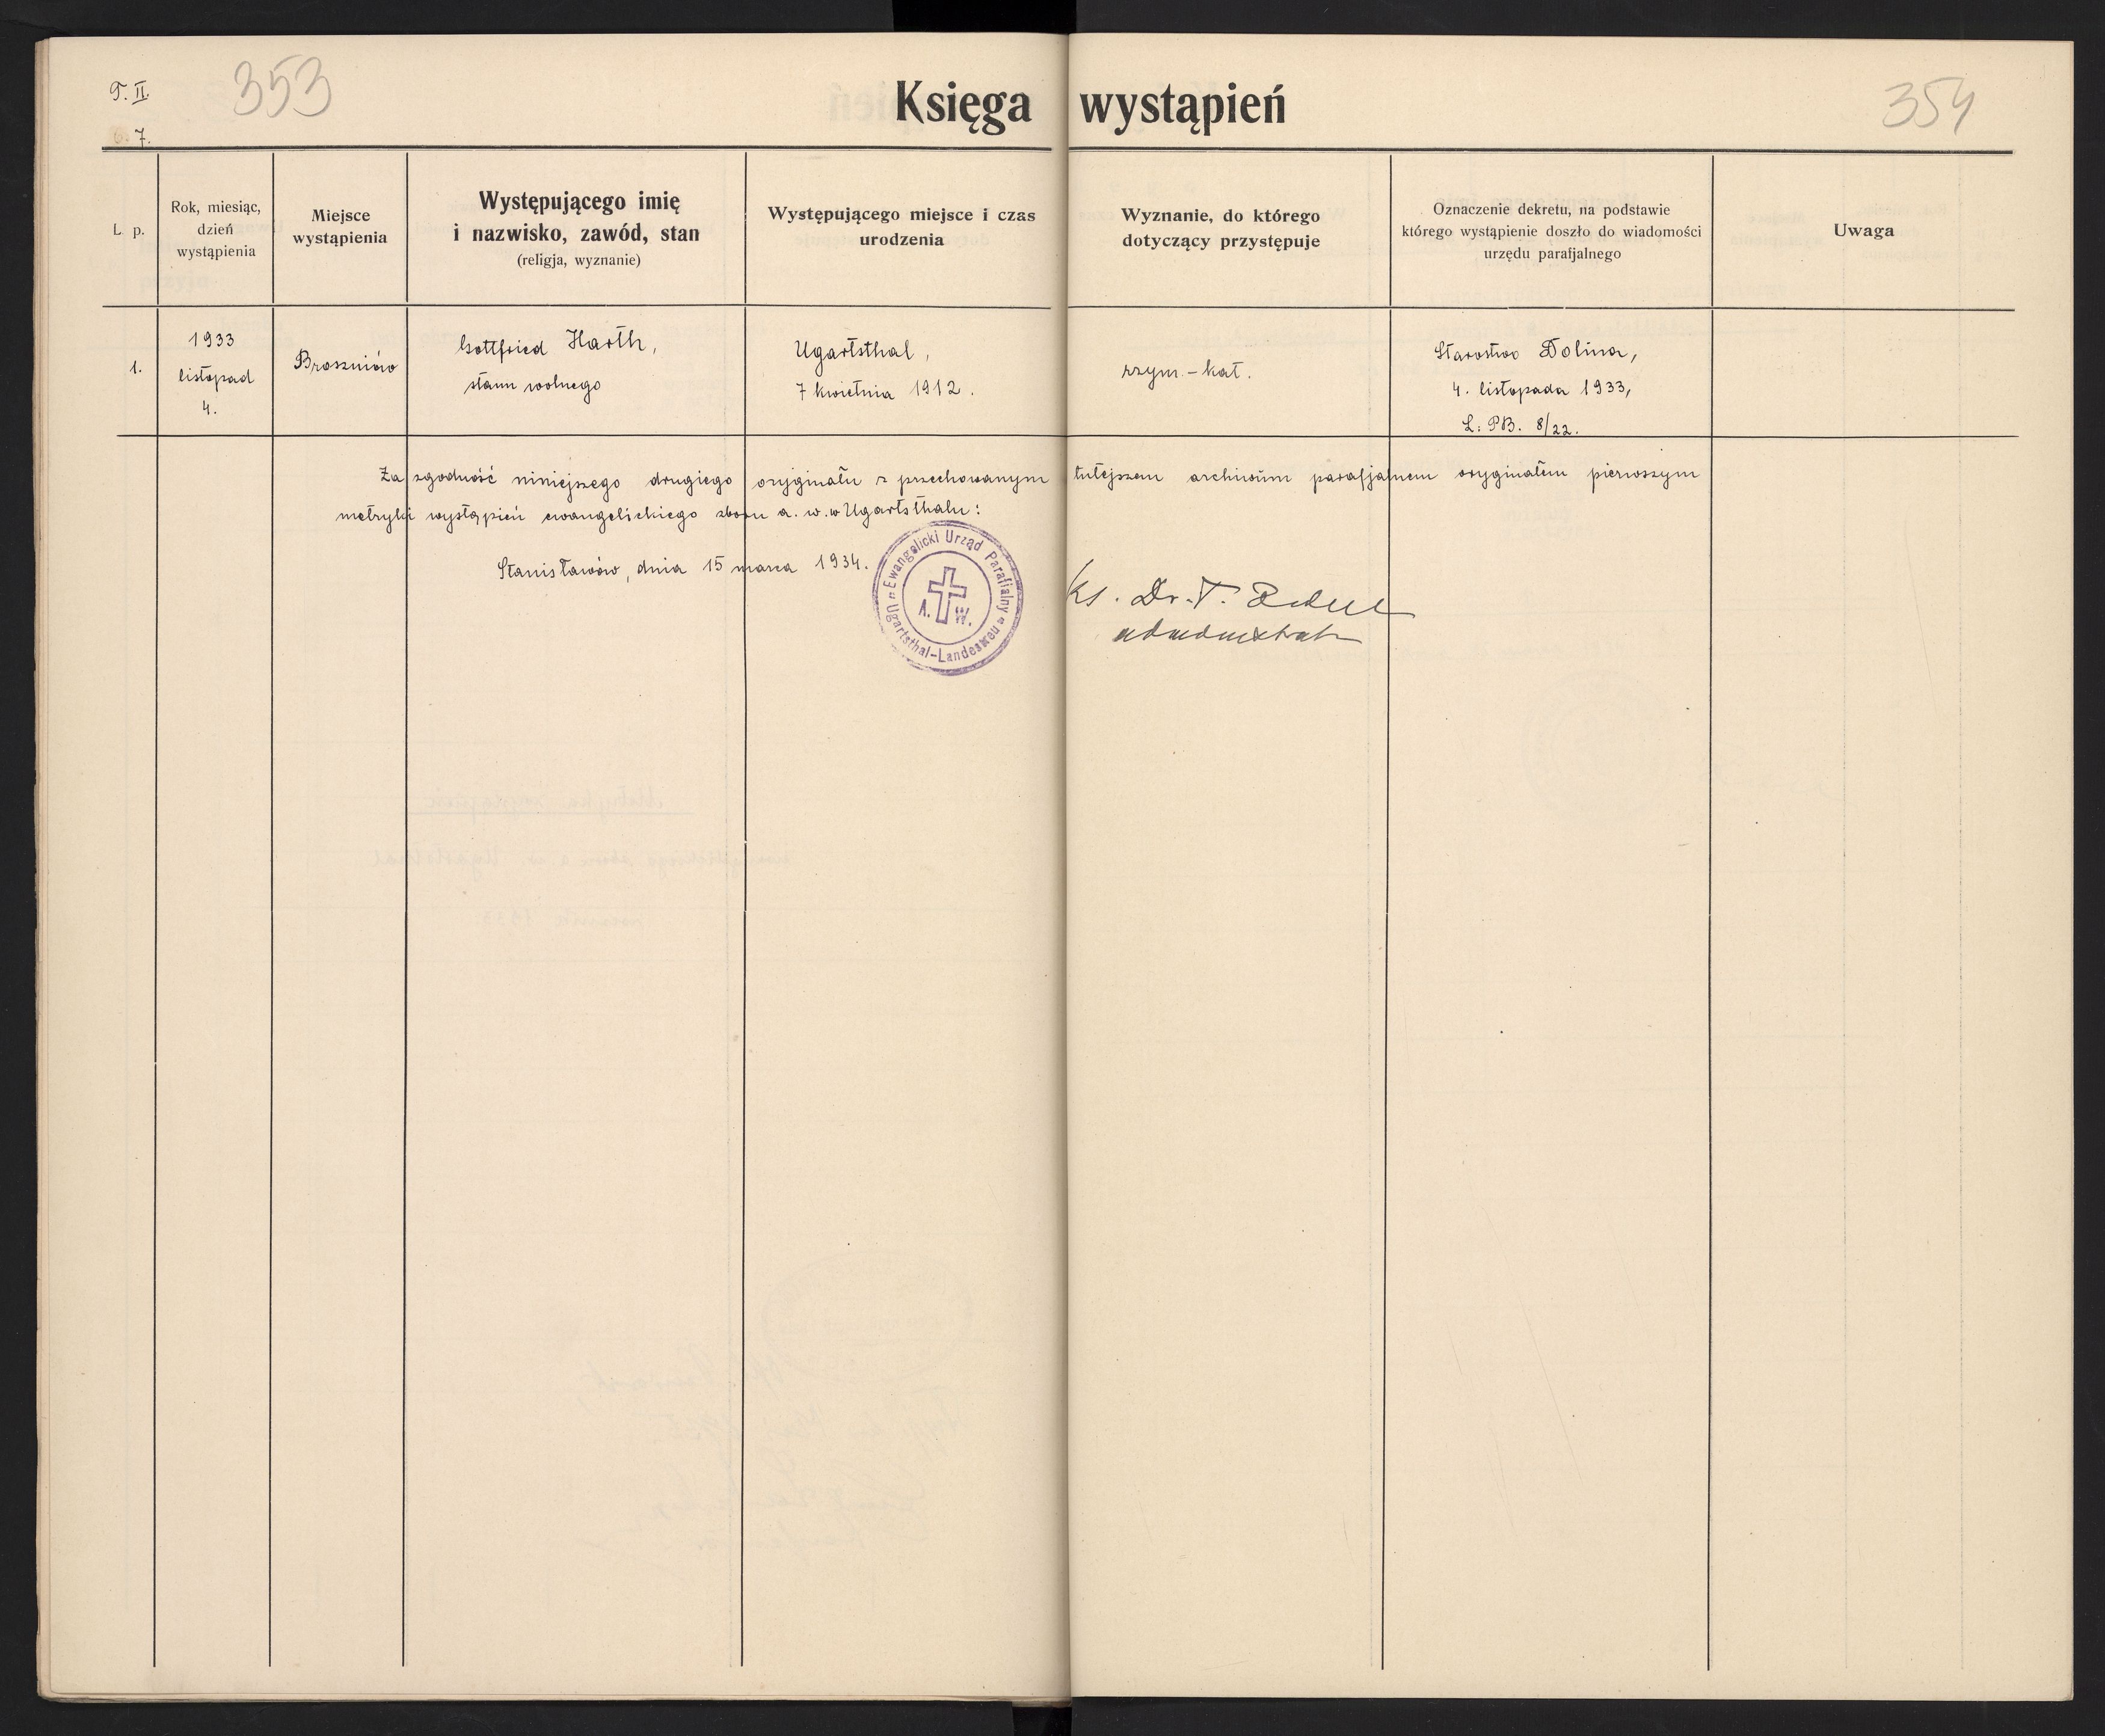 T. II.
353
7.
Księga wystąpień
354
L. p.
Rok, miesiąc,
dzień
wystąpienia
Miejsce
wystąpienia
Występującego imię
i nazwisko, zawód, stan
(religja, wyznanie)
Występującego miejsce i czas
urodzenia
Wyznanie, do którego
dotyczący przystępuje
Oznaczenie dekretu, na podstawie
którego wystąpienie doszło do wiadomości
urzędu parafjalnego
Uwaga
1.
1933
listopad
4.
Broszniów
Gottfried Harth,
stanu wolnego
Ugartsthal,
7 kwietnia 1912.
rzym.-kat.
Starostwo Dolina,
4. listopada 1933,
L: PB. 8/22.
Za zgodność niniejszego drugiego oryginału z przechowanym tutejszem archiwum parafjalnem oryginałem pierwszym
metryki wystąpień ewangelickiego zboru a. w. w Ugartsthalu:
Stanisławów, dnia 15 marca 1934.
Ewangelicki Urząd Parafialny
A. W.
Ugartsthal-Landestreu
Ks. Dr. T.